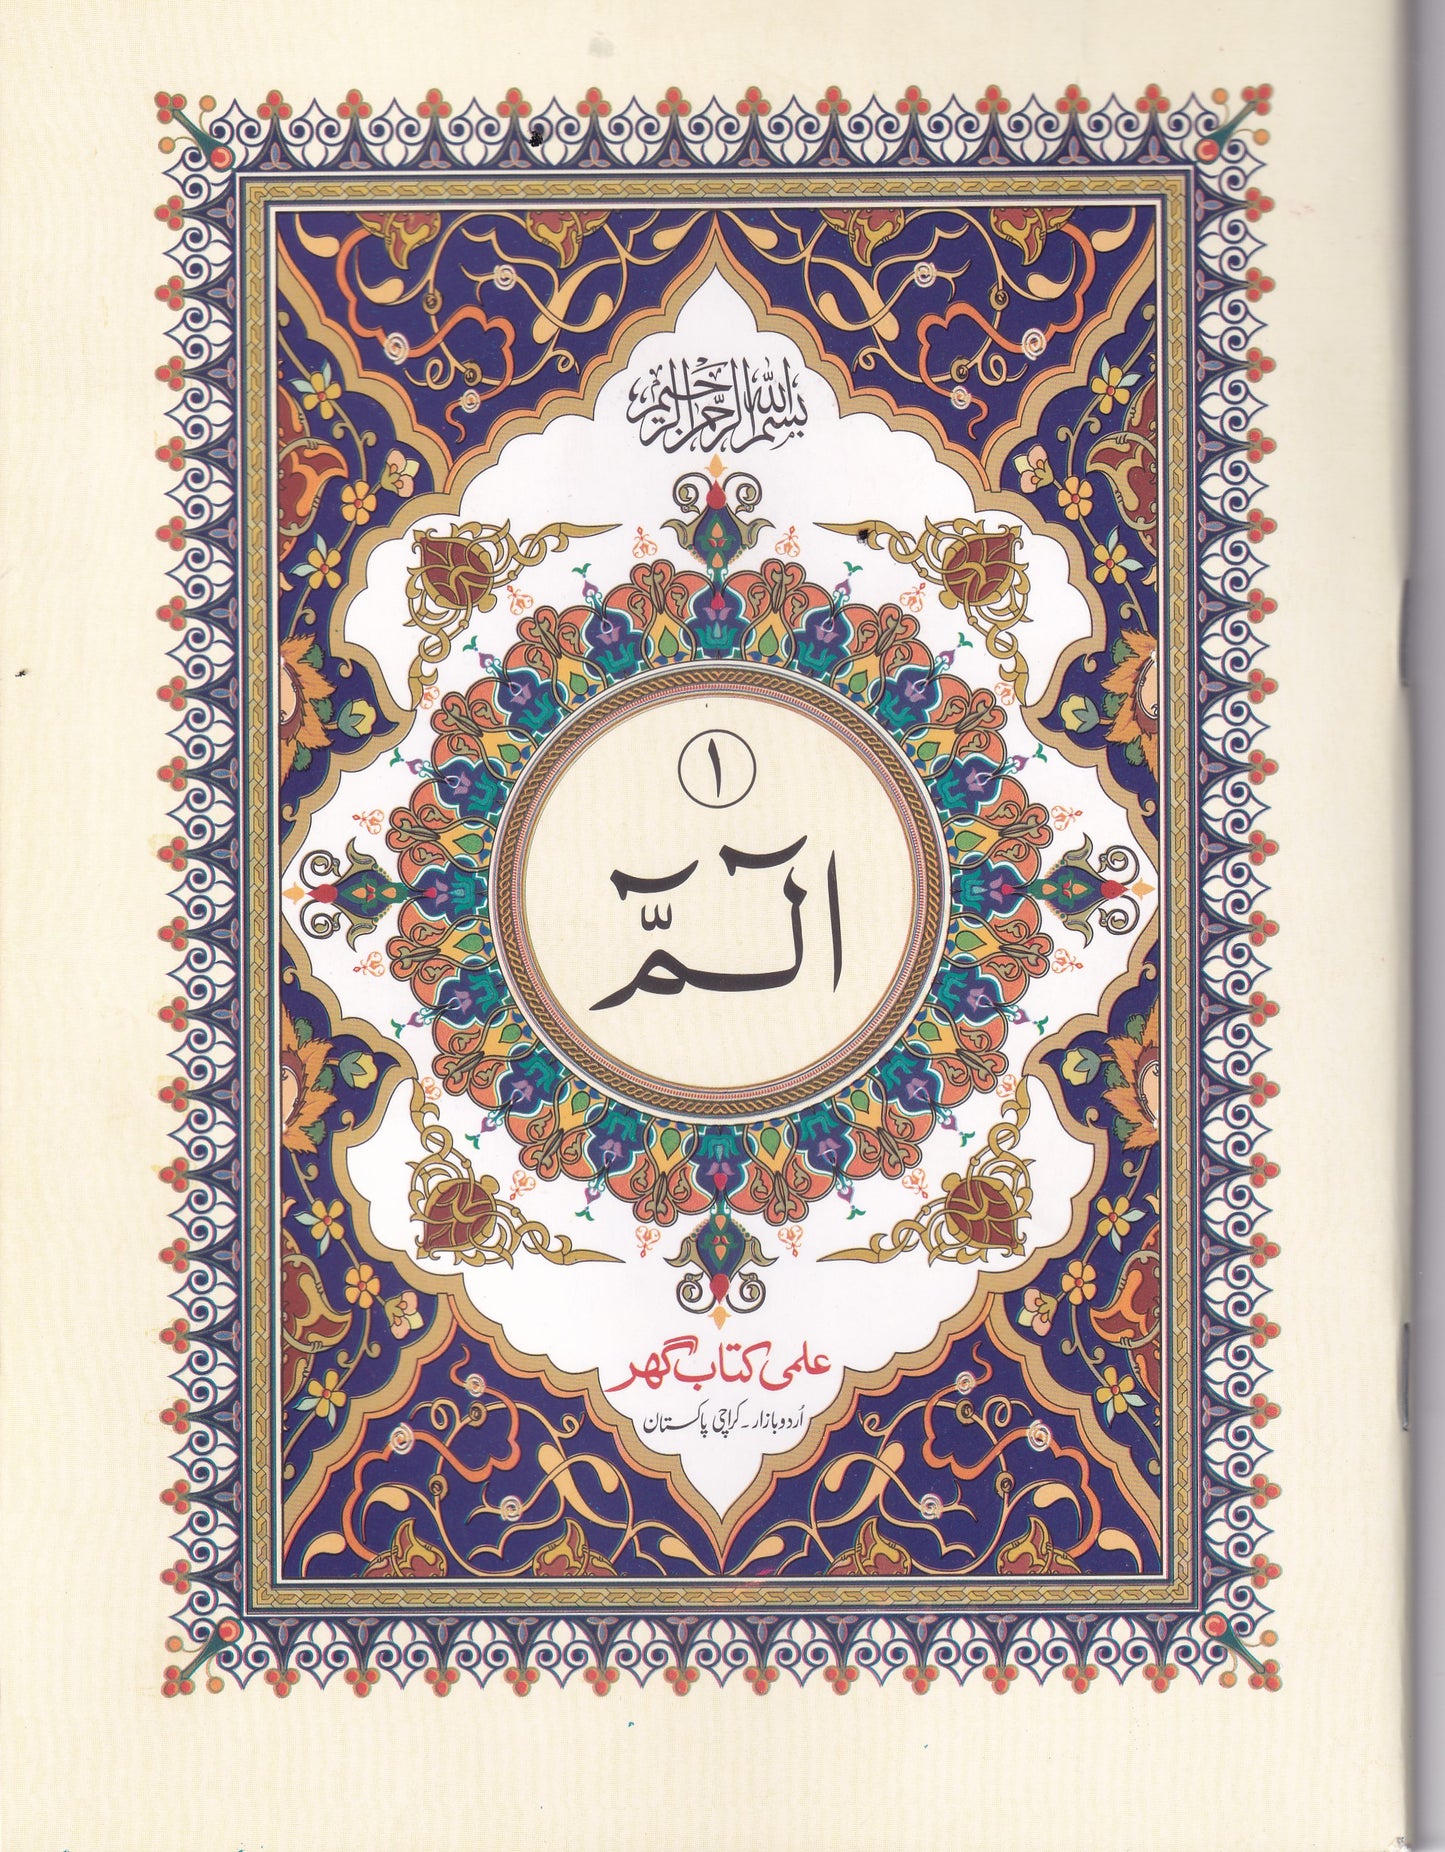 بسم الله الرحمن الرحيم
١
الٓمّٓ
علمی کتاب گھر
اُردو بازار ۔ کراچی پاکستان